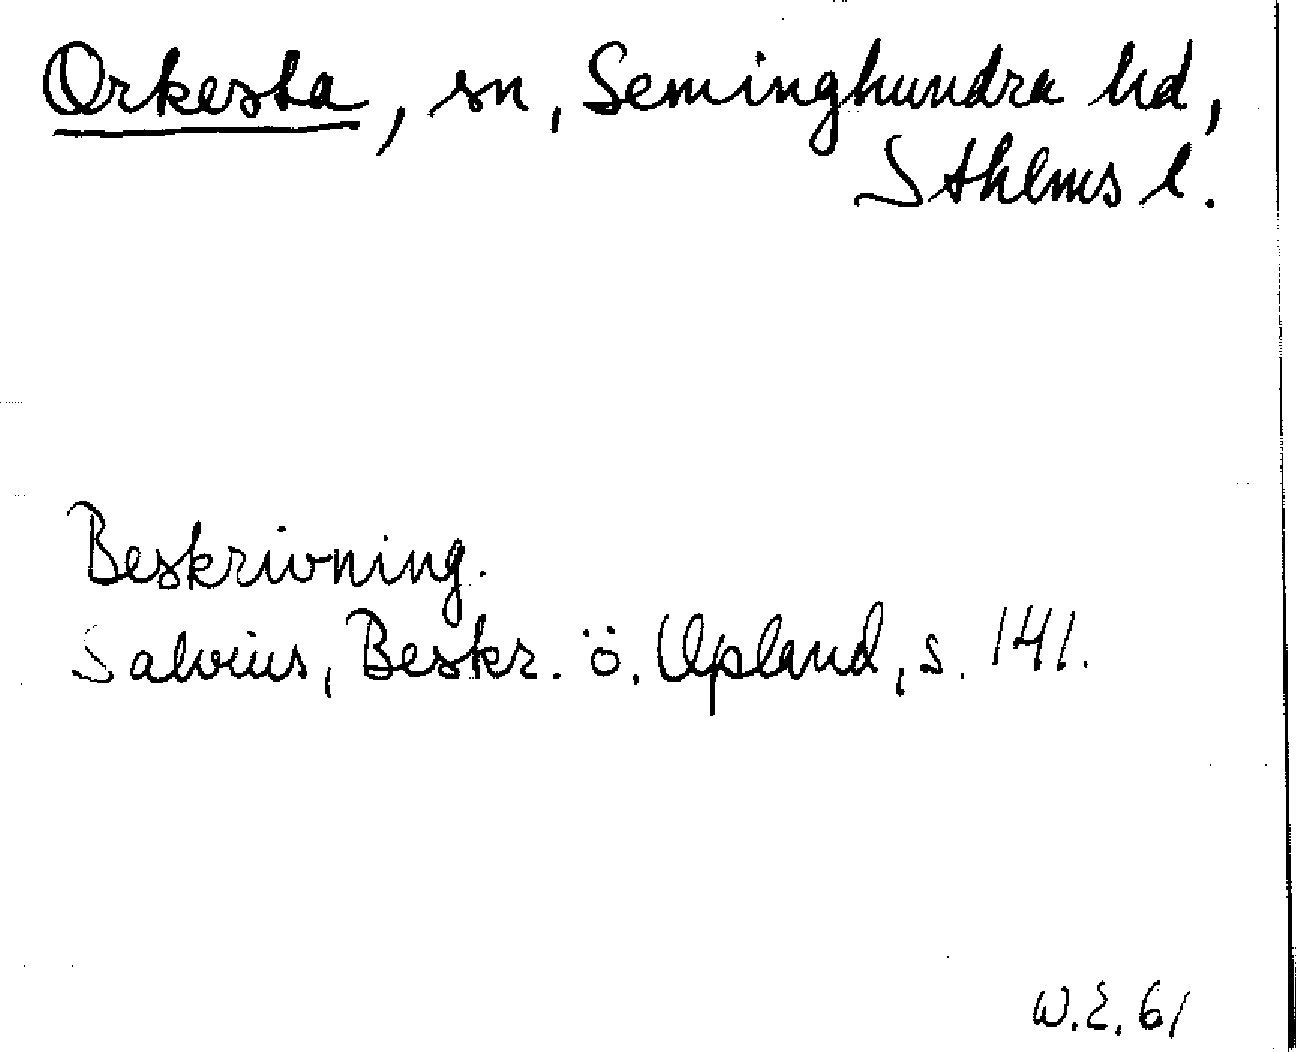 Orkesta, sn, Seminghundra hd,
Sthlms l.
Beskrivning.
Salvius, Beskr. ö. Upland, s. 141.
W.E. 61